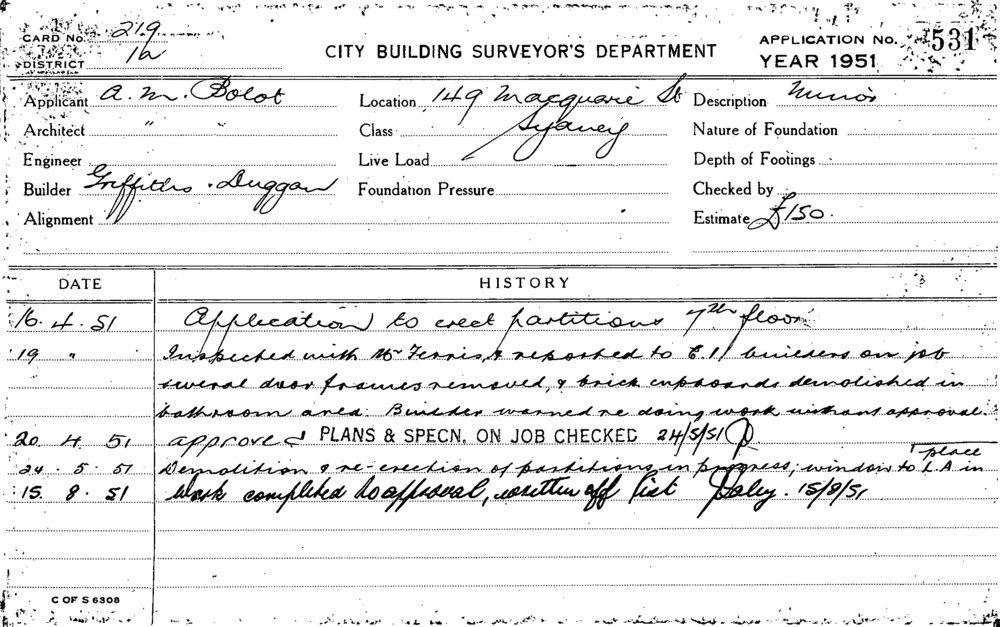 CARD No. 219
DISTRICT 1a
CITY BUILDING SURVEYOR'S DEPARTMENT
APPLICATION No. 531
YEAR 1951
Applicant A. M. Bolot Location 149 Macquarie St Description Minor
Architect " " Class Sydney Nature of Foundation
Engineer Live Load Depth of Footings
Builder Griffiths . Duggan Foundation Pressure Checked by
Alignment Estimate £150.
DATE HISTORY
16. 4. 51 Application to erect partitions 7th floor
19 " Inspected with Mr Ferris, & reported to E.I, builders on job
several door frames removed, & brick cupboards demolished in
bathroom area. Builder warned re doing work without approval.
20 4 51 approved PLANS & SPECN. ON JOB CHECKED 24/5/51
24. 5. 51 Demolition & re-erection of partitions in progress; window to L.A in place
15. 8. 51 Work completed to approval, written off list 15/8/51
C OF S 6308